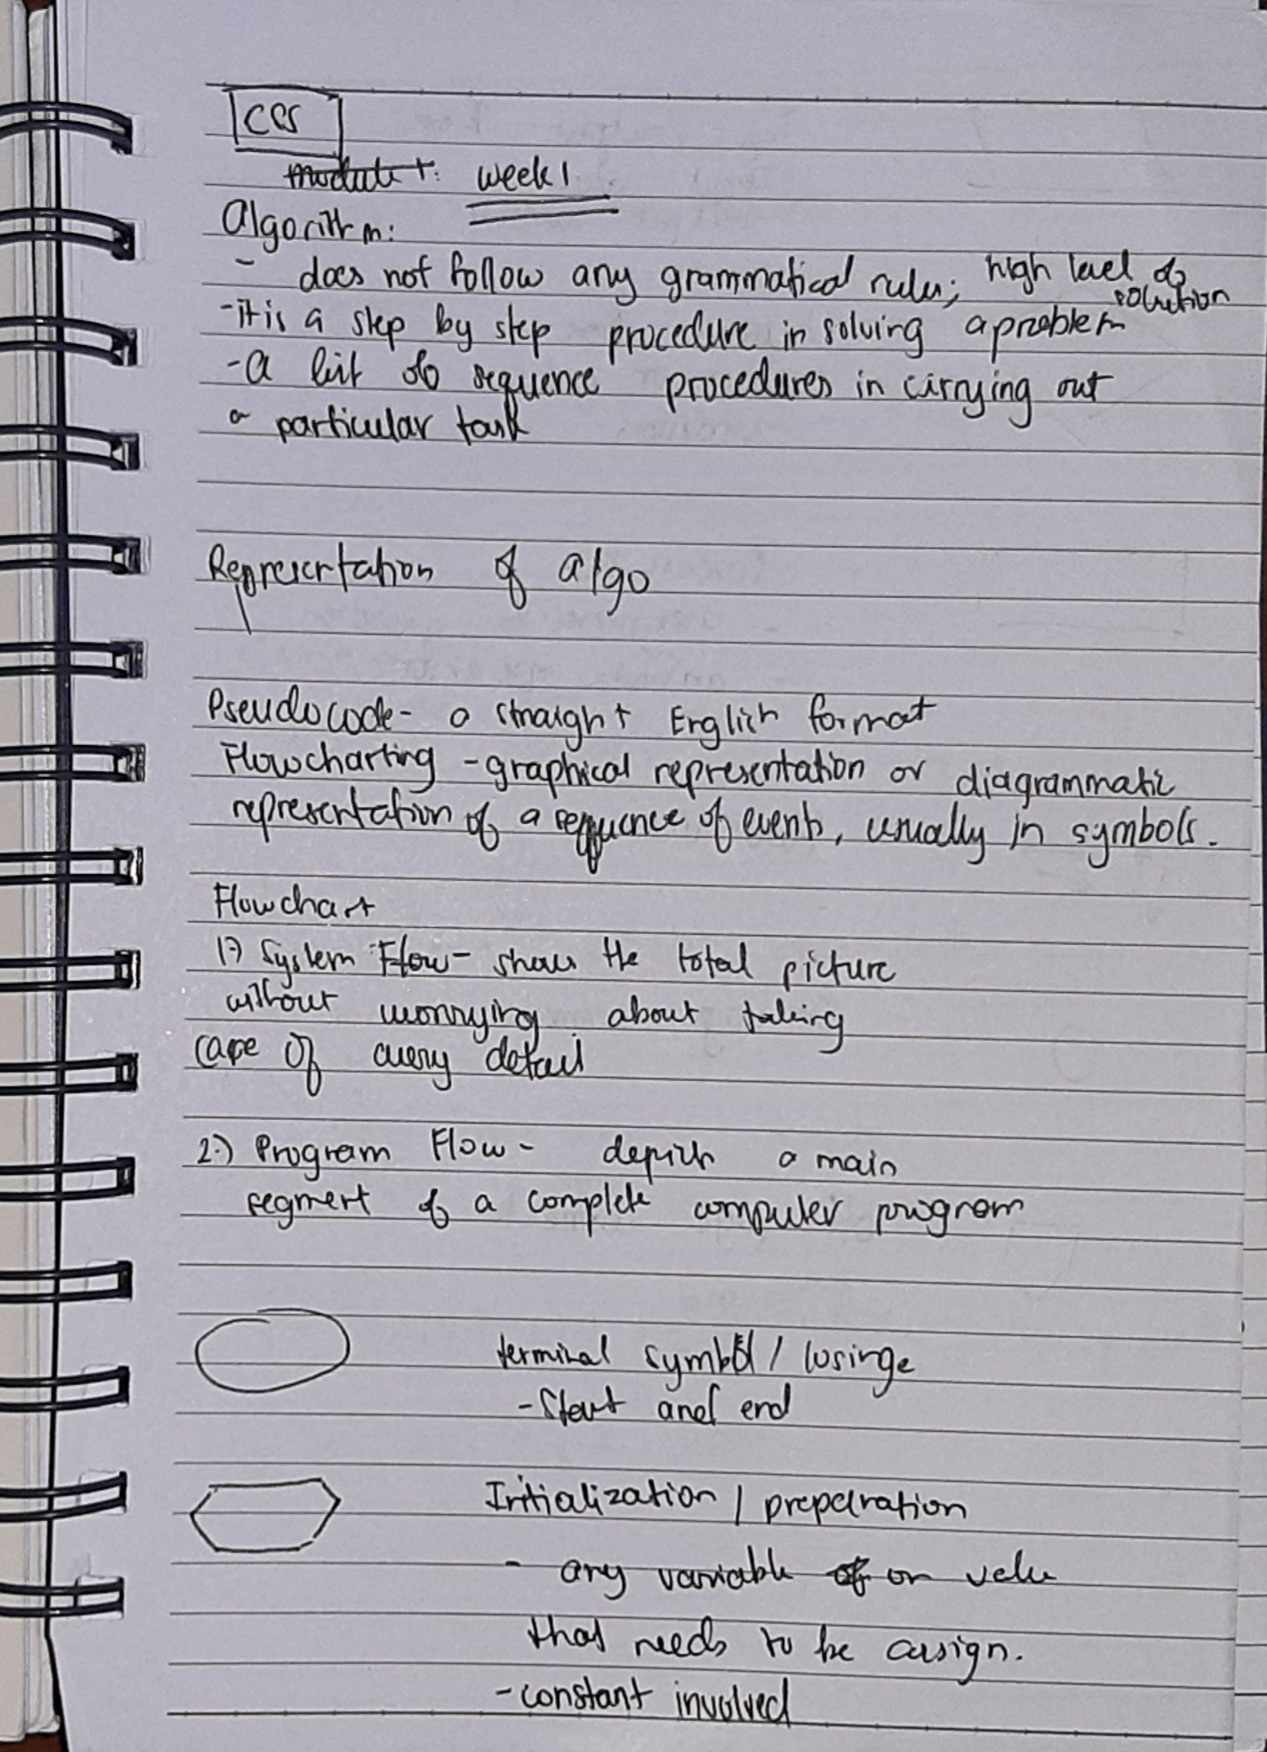 CCS
module 1: week 1
Algorithm:
- does not follow any grammatical rules; high level of
solution
- it is a step by step procedure in solving a problem
- a list of sequence procedures in carrying out
a particular task
Representation of algo
Pseudocode - a straight English format
Flowcharting - graphical representation or diagrammatic
representation of a sequence of events, usually in symbols.
Flowchart
1.) System Flow - shows the total picture
without worrying about taking
care of every detail
2.) Program Flow - depicts a main
segment of a complete computer program
terminal symbol / lozinge
- Start and end
Initialization / preparation
- any variable of or value
that needs to be assign.
- constant involved